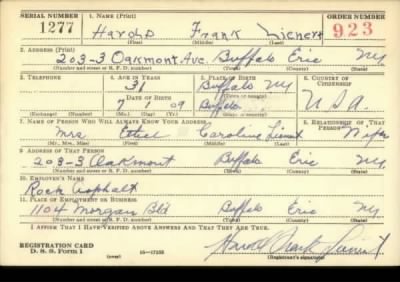 SERIAL NUMBER 1. NAME (Print) ORDER NUMBER
1277 Harold Frank Lienert 923
(First) (Middle) (Last)
2. ADDRESS (Print)
203-3 Oakmont Ave. Buffalo Erie NY
(Number and street or R. F. D. number) (Town) (County) (State)
3. TELEPHONE 4. AGE IN YEARS 5. PLACE OF BIRTH 6. COUNTRY OF CITIZENSHIP
31 Buffalo NY
DATE OF BIRTH (Town or county)
7 1 09 Buffalo USA
(Exchange) (Number) (Mo.) (Day) (Yr.) (State or country)
7. NAME OF PERSON WHO WILL ALWAYS KNOW YOUR ADDRESS 8. RELATIONSHIP OF THAT PERSON
Mrs Ethel Caroline Lienert Wife
(Mr., Mrs., Miss) (First) (Middle) (Last)
9. ADDRESS OF THAT PERSON
203-3 Oakmont Buffalo Erie NY
(Number and street or R. F. D. number) (Town) (County) (State)
10. EMPLOYER'S NAME
Rock Asphalt
11. PLACE OF EMPLOYMENT OR BUSINESS
1104 Morgan Bld Buffalo Erie NY
(Number and street or R. F. D. number) (Town) (County) (State)
I AFFIRM THAT I HAVE VERIFIED ABOVE ANSWERS AND THAT THEY ARE TRUE.
REGISTRATION CARD
D. S. S. Form 1 16-17105 Harold Frank Lienert
(Registrant's signature)